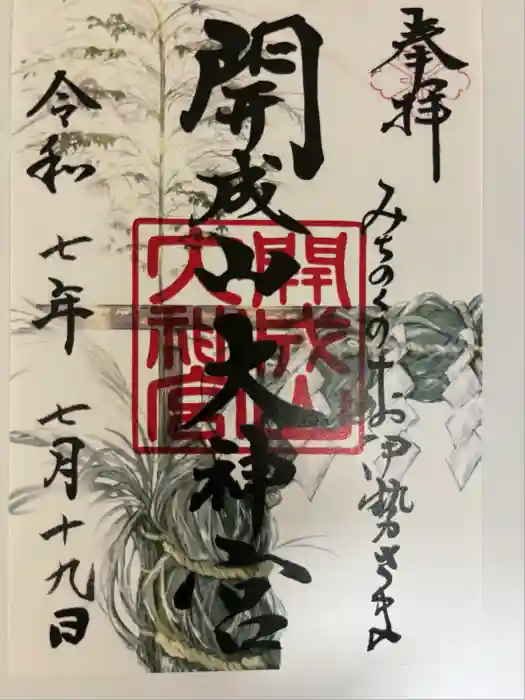 奉拝
みちのくのお伊勢さま
開成山大神宮
開成山大神宮
令和七年七月十九日